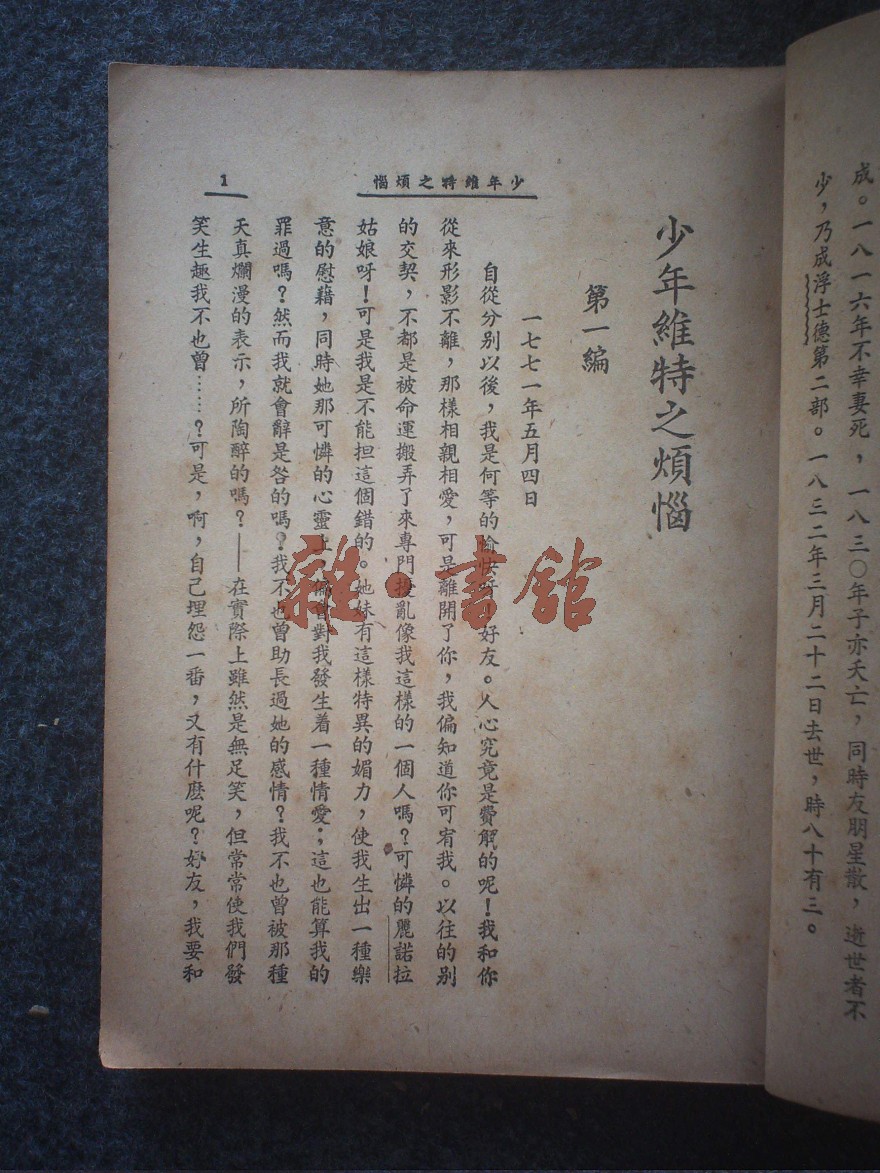 成。一八一六年不幸妻死，一八三〇年子亦夭亡，同時友朋星散，逝世者不
少，乃成浮士德第二部。一八三二年三月二十二日去世，時八十有三。
少年維特之煩惱
1
少年維特之煩惱
第一編
一七七一年五月四日
自從分別以後，我是何等的愉快呀！好友。人心究竟是費解的呢！我和你
從來形影不離，那樣相親相愛，可是離開了你，我偏知道你可宥我。以往的別
的交契，不都是被命運搬弄了來專門擾亂像我這樣的一個人嗎？可憐的麗諾拉
姑娘呀！可是我是不能担這個錯的。她妹有這樣特異的媚力，使我生出一種樂
意的慰藉，同時她那可憐的心靈上，偏會對我發生着一種情愛；這也能算我的
罪過嗎？然而我就會辭是咎的嗎？我不也曾助長過她的感情？我不也曾被那種
天真爛漫的表示，所陶醉的嗎？——在實際上雖然是無足笑，但常常使我們發
笑生趣我不也曾……？可是，啊，自己埋怨一番，又有什麽呢？好友，我要和
雜·書館